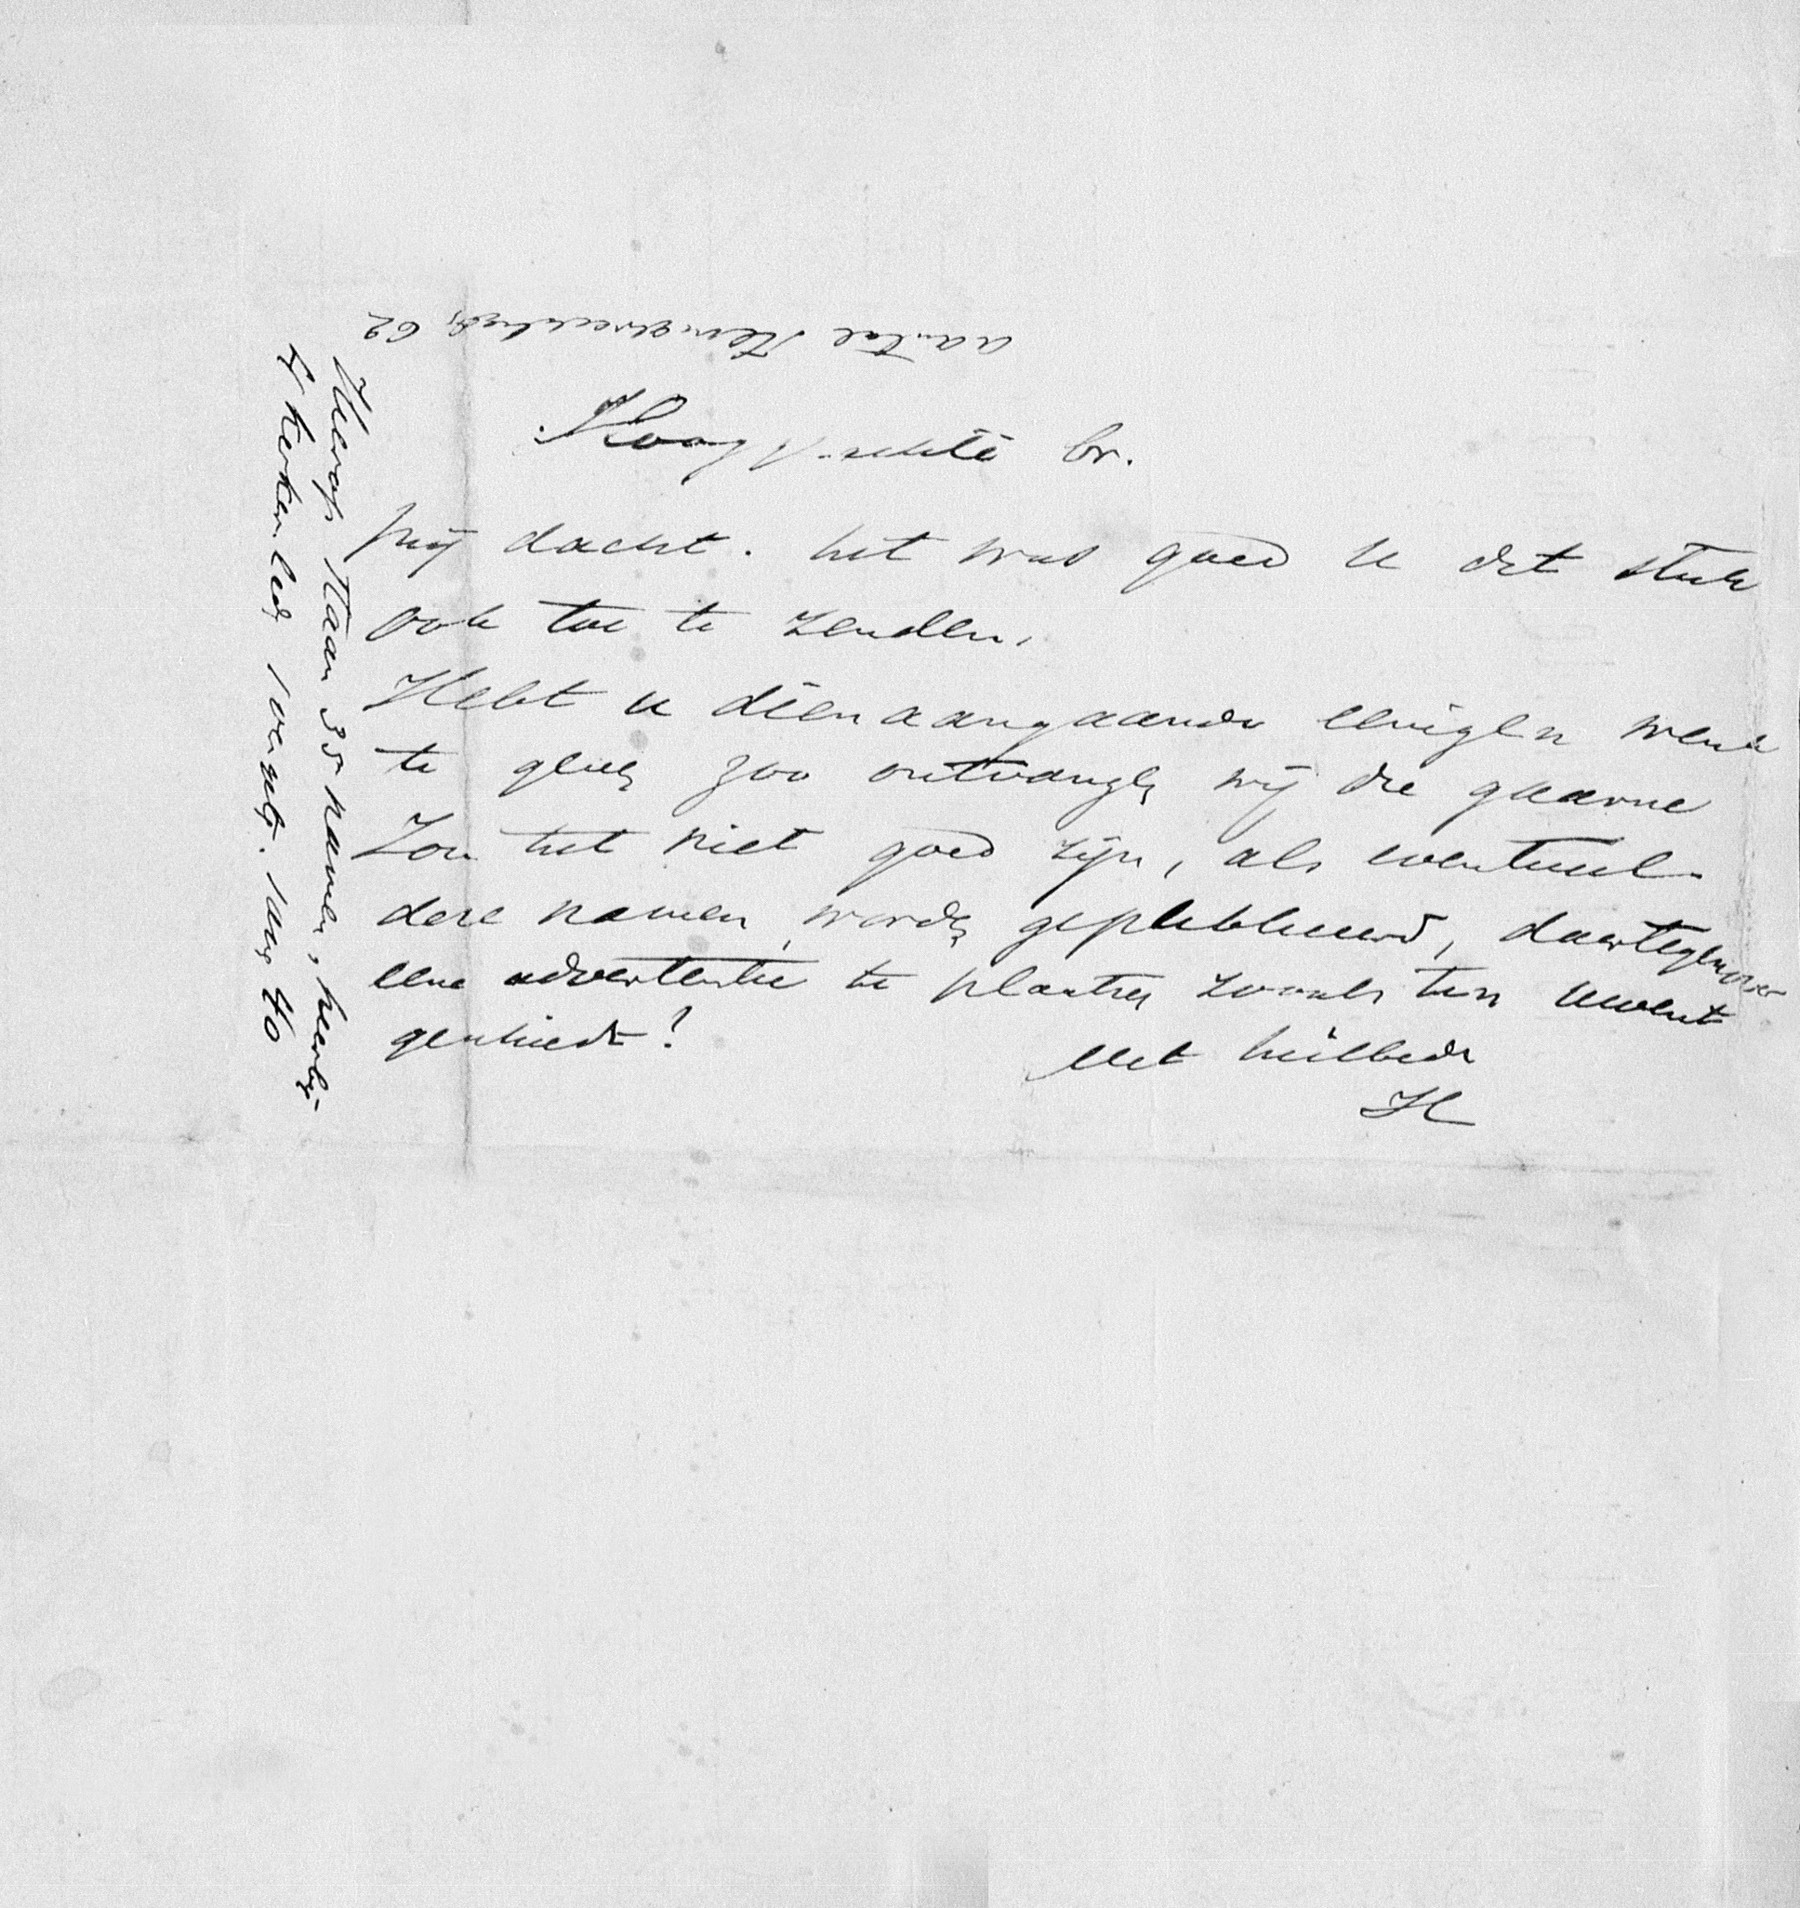 Hooggeachte br.
Mij dacht. het was goed U dit stuk
ook toe te zenden.
Hebt u dienaangaande eenigen wenk
te geven zoo ontvangen wij die gaarne
Zou het niet goed zijn, als eventueel
deze namen worden gepubliceerd, daartegenover
eene advertentie te plaatsen zooals ten uwent
geschiedt?
Met heilbede
H
Hierop staan 35 namen, hierbij
4 kerken leden
aantal 62